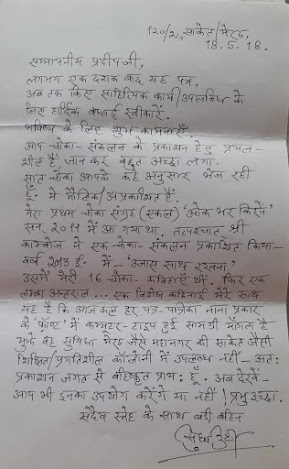 120/2, साकेत/मेरठ
18.5.18.
सम्माननीय प्रदीपजी,
लगभग एक दशक बाद यह पत्र.
अब तक किए साहित्यिक कार्य/उपलब्धि के
लिए हार्दिक बधाई स्वीकारें.
भविष्य के लिए शुभ कामनाएँ.
आप चौका-संकलन के प्रकाशन हेतु प्रयत्न-
शील हैं जान कर बहुत अच्छा लगा.
सात चौका आपके कहे अनुसार भेज रही
हूँ. ये मौलिक/अप्रकाशित हैं.
मेरा प्रथम चौका संग्रह (एकल) 'ओक भर किरनें'
सन् 2011 में आ गया था. तत्पश्चात श्री
काम्बोज ने एक चौका-संकलन प्रकाशित किया-
वर्ष 2013 ई. में- 'उजास साथ रखना'
उसमें मेरी 16 चौका-कविताएँ थीं. फिर एक
लम्बा अन्तराल... एक विशेष कठिनाई मेरे साथ
यह है कि आज कल हर पत्र-पत्रिका नाना प्रकार
के 'फॉन्ट' में कम्प्यूटर-टाइप हुई सामग्री माँगता है
मुझे वह सुविधा मेरठ जैसे महानगर की साकेत जैसी
शिक्षित/प्रगतिशील कॉलोनी में उपलब्ध नहीं-अतः
प्रकाशन जगत से बहिष्कृत प्रायः हूँ. अब देखें-
आप भी इनका उपयोग करेंगे या नहीं! प्रभु इच्छा.
सदैव स्नेह के साथ बड़ी बहिन